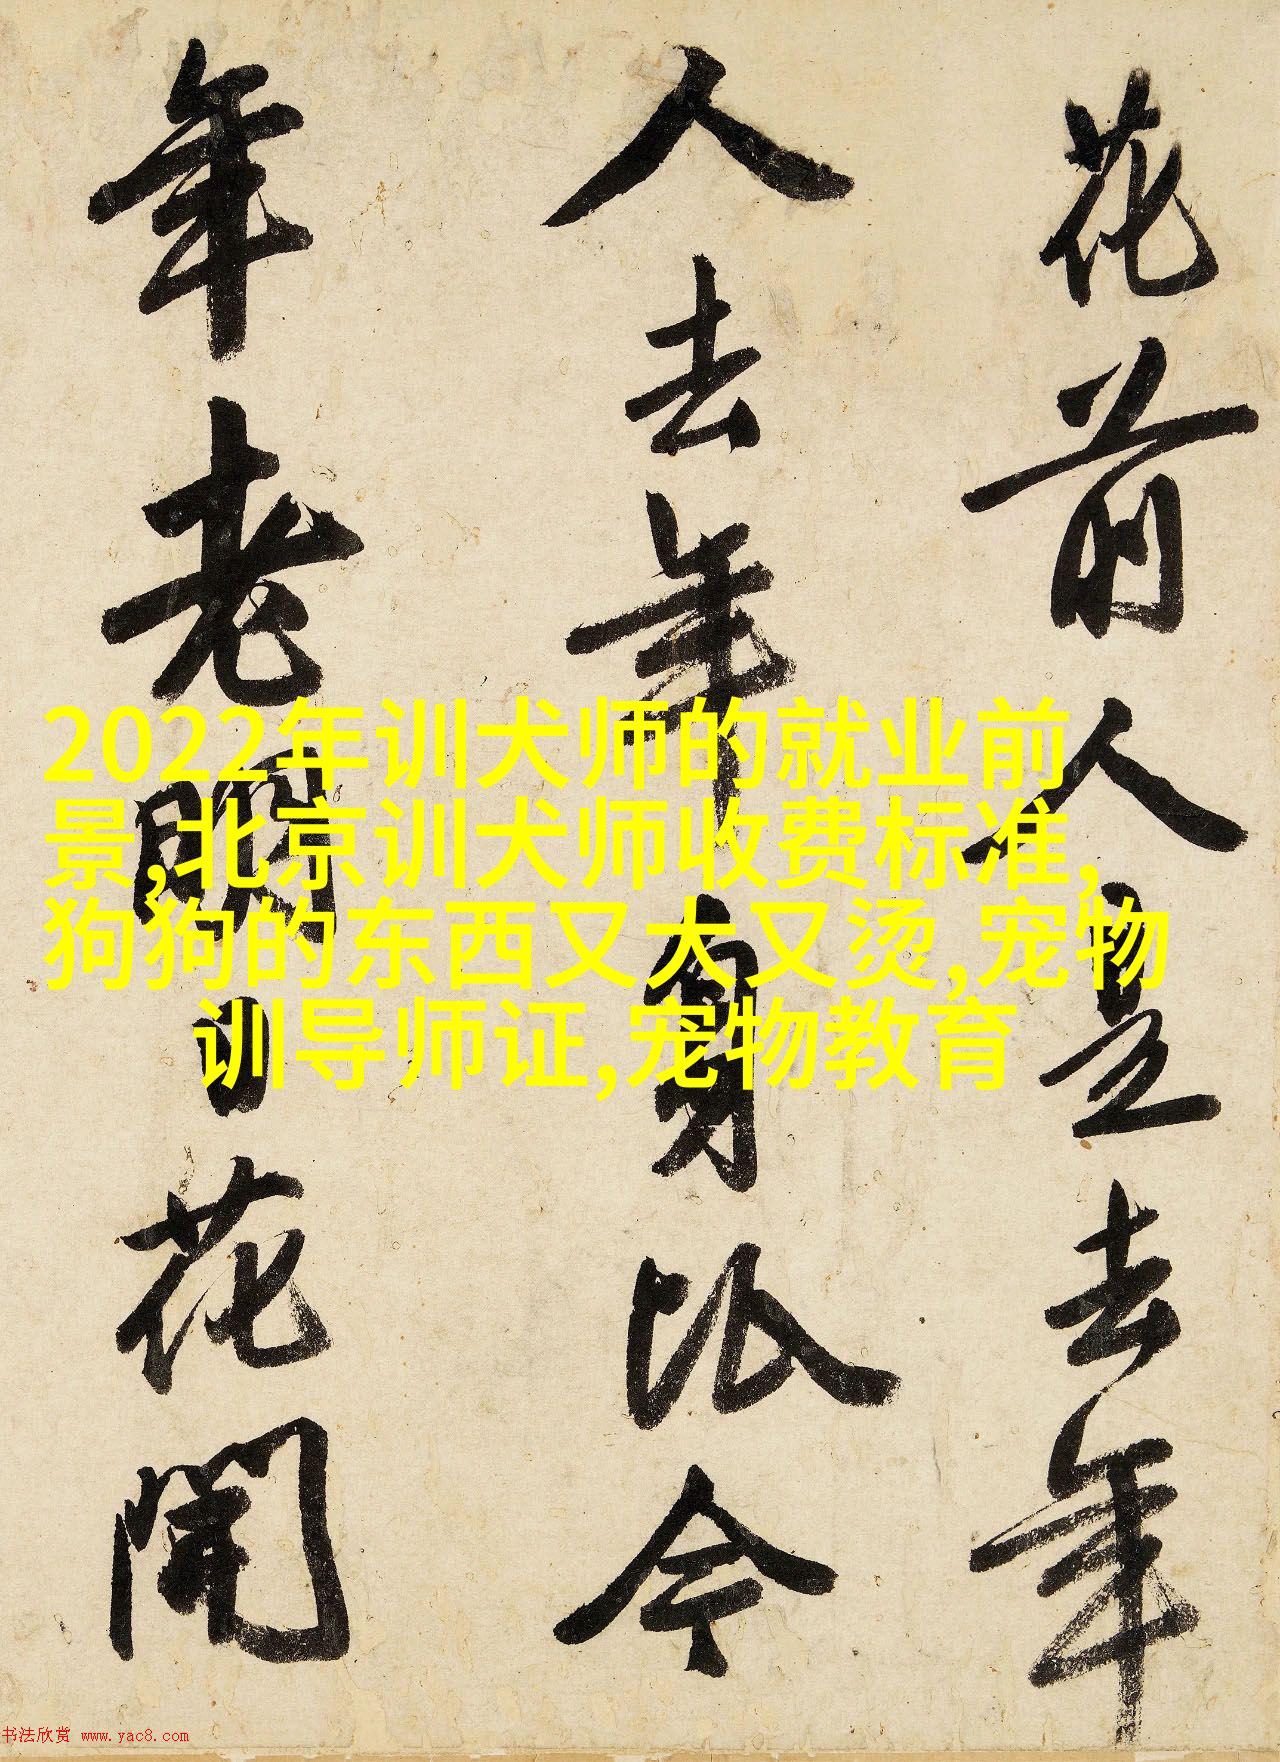 花前人是去年
人去年身比今
年老明日花開
2022年训犬师的就业前
景,北京训犬师收费标准,
狗狗的东西又大又烫,宠物
训导师证,宠物教育
书法欣赏 www.yac8.com